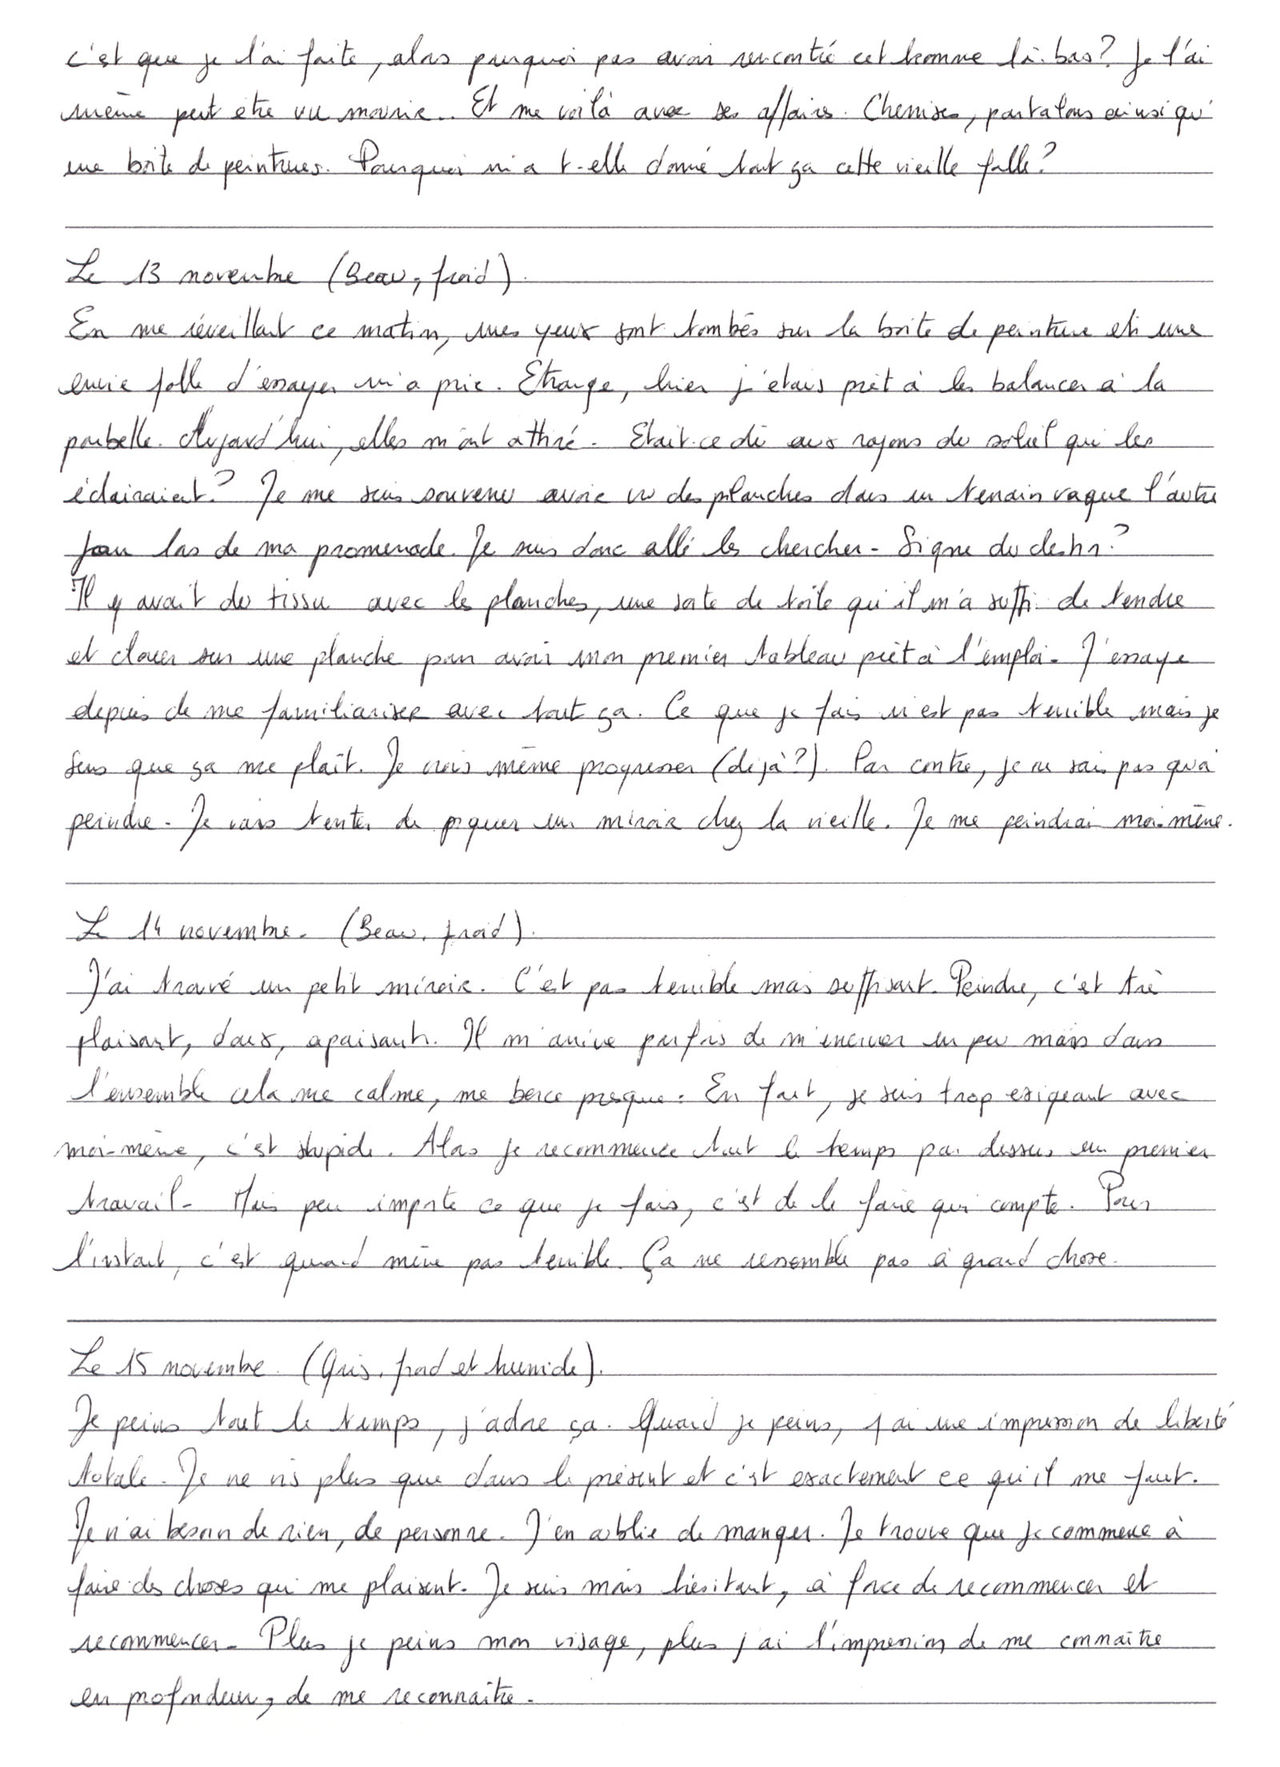 c'est que je l'ai faite, alors pourquoi pas avoir rencontré cet homme là-bas? Je l'ai
même peut être vu mourir.. Et me voilà avec ses affaires. Chemises, pantalons ainsi qu'
une boîte de peintures. Pourquoi m'a t-elle donné tout ça cette vieille folle?
Le 13 novembre (Beau, froid).
En me réveillant ce matin, mes yeux sont tombés sur la boîte de peinture et une
envie folle d'essayer m'a pris. Etrange, hier j'étais prêt à les balancer à la
poubelle. Aujourd'hui, elles m'ont attiré. Etait-ce dû aux rayons de soleil qui les
éclairaient? Je me suis souvenu avoir vu des planches dans un terrain vague l'autre
jour lors de ma promenade. Je suis donc allé les chercher. Signe du destin?
Il y avait du tissu avec les planches, une sorte de toile qu'il m'a suffi de tendre
et clouer sur une planche pour avoir mon premier tableau prêt à l'emploi. J'essaye
depuis de me familiariser avec tout ça. Ce que je fais n'est pas terrible mais je
sens que ça me plaît. Je crois même progresser (déjà?). Par contre, je ne sais pas quoi
peindre. Je vais tenter de piquer un miroir chez la vieille. Je me peindrai moi-même.
Le 14 novembre. (Beau, froid).
J'ai trouvé un petit miroir. C'est pas terrible mais suffisant. Peindre, c'est très
plaisant, doux, apaisant. Il m'arrive parfois de m'énerver un peu mais dans
l'ensemble cela me calme, me berce presque. En fait, je suis trop exigeant avec
moi-même, c'est stupide. Alors je recommence tout le temps par dessus un premier
travail. Mais peu importe ce que je fais, c'est de le faire qui compte. Pour
l'instant, c'est quand même pas terrible. Ça ne ressemble pas à grand chose.
Le 15 novembre. (Gris, froid et humide).
Je peins tout le temps, j'adore ça. Quand je peins, j'ai une impression de liberté
totale. Je ne vis plus que dans le présent et c'est exactement ce qu'il me faut.
Je n'ai besoin de rien, de personne. J'en oublie de manger. Je trouve que je commence à
faire des choses qui me plaisent. Je suis moins hésitant, à force de recommencer et
recommencer. Plus je peins mon visage, plus j'ai l'impression de me connaître
en profondeur, de me reconnaître.